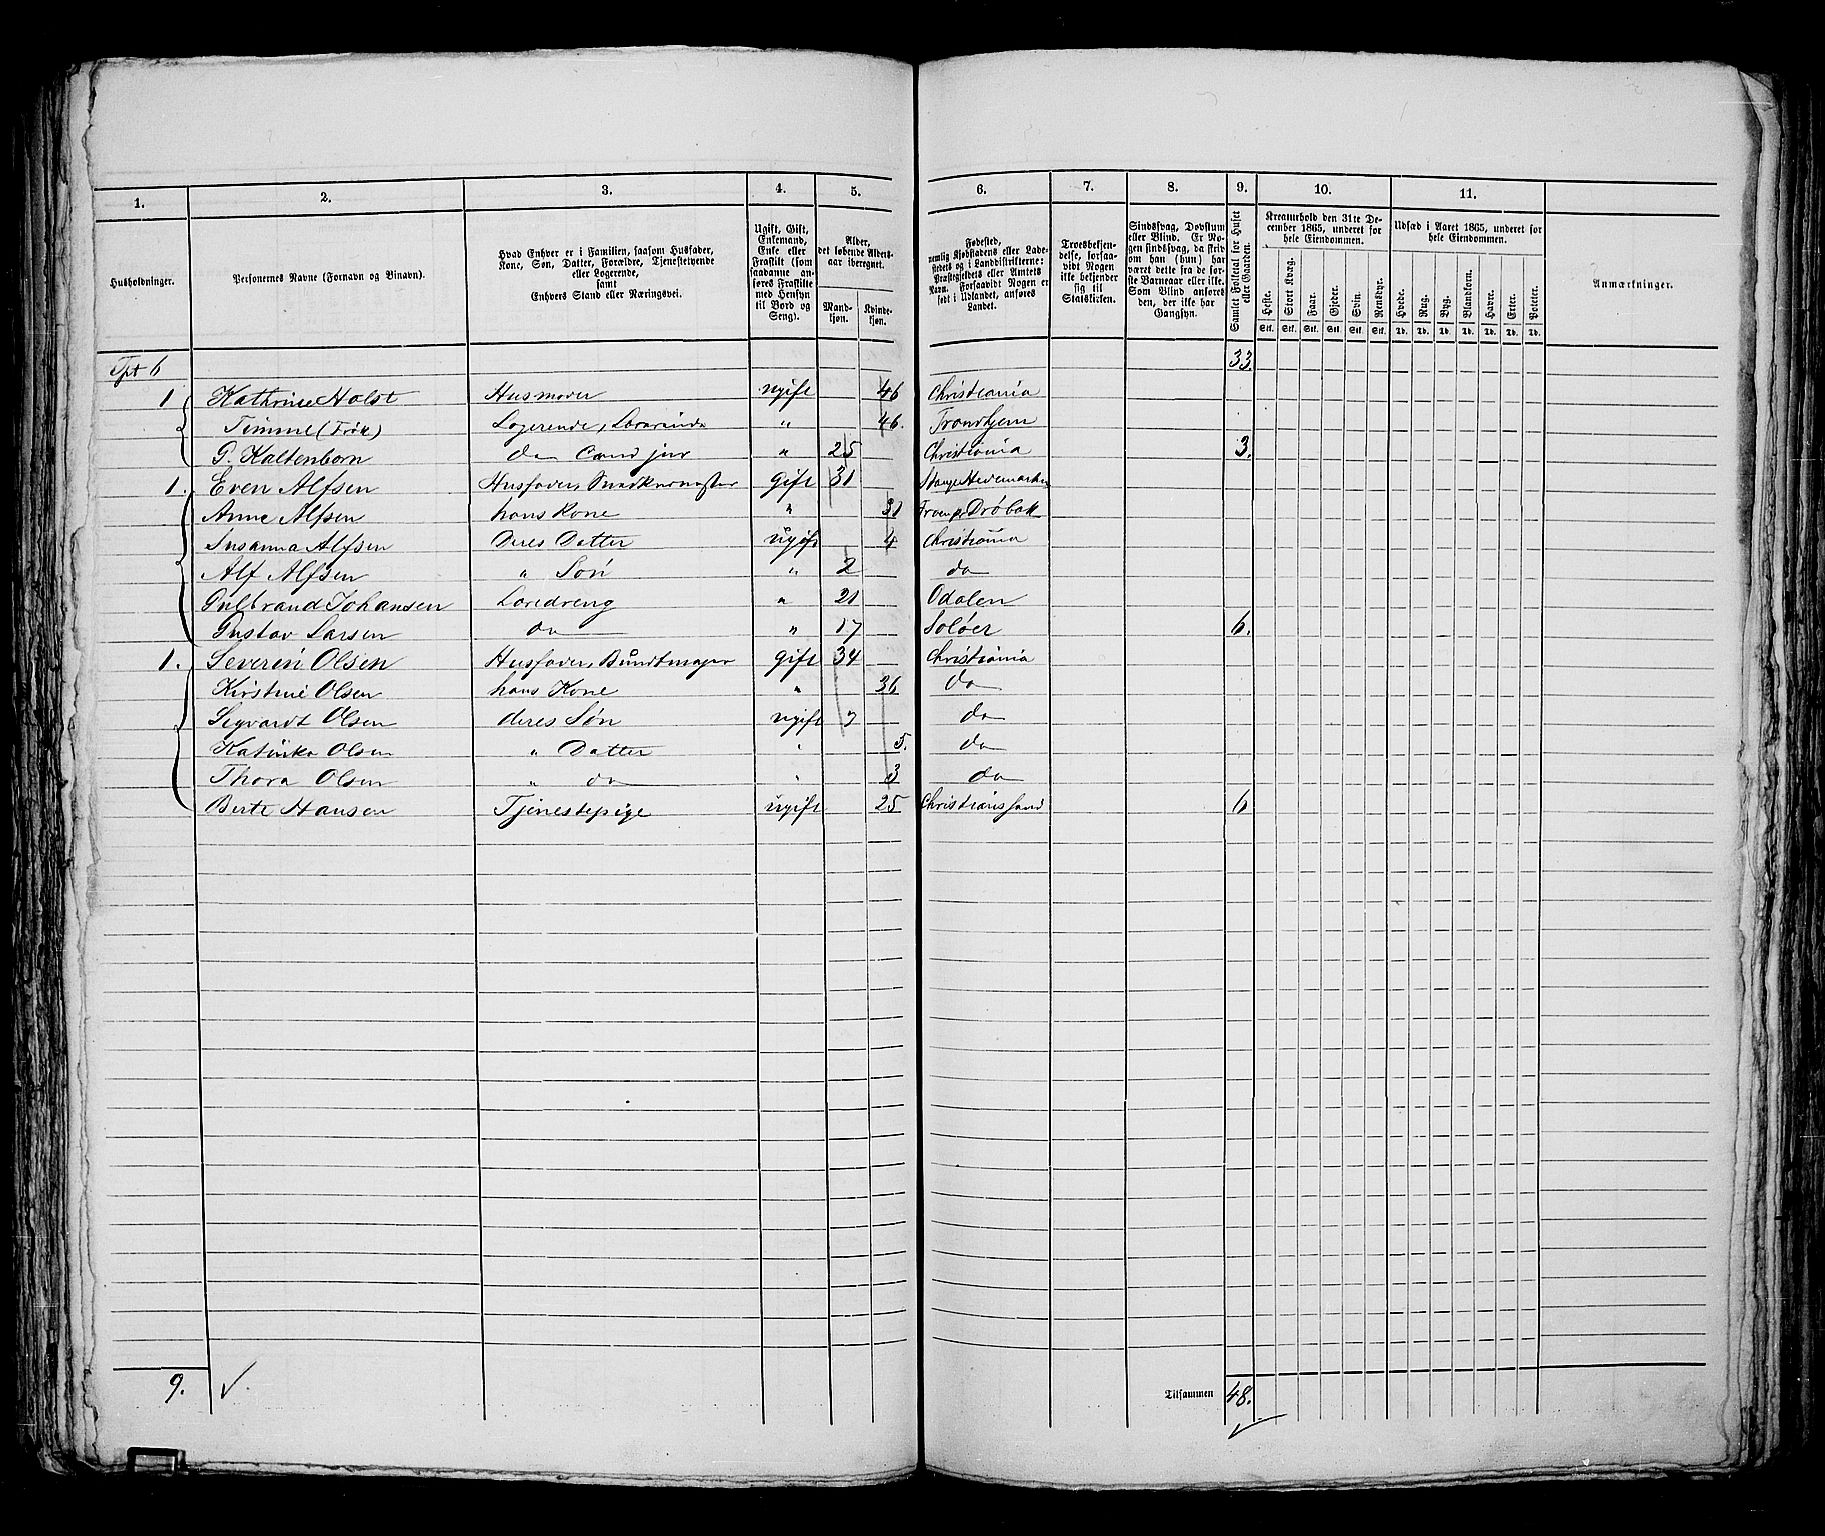 1. 2. 3. 4. 5. 6. 7. 8. 9. 10. 11.
Husholdninger.
Personernes Navne (Fornavn og Binavn).
Hvad Enhver er i Familien, saasom Husfader, Kone, Søn, Datter, Forældre, Tjenestetyende eller Logerende, samt Enhvers Stand eller Næringsvei.
Ugift, Gift, Enkemand, Enke eller Fraskilt (som saadanne anføres Fraskilte med Hensyn til Bord og Seng).
Alder, det løbende Aldersaar iberegnet.
Mandkjøn. Kvindekjøn.
Fødested, nemlig Kjøbstadens eller Ladestedets og i Landdistrikterne: Præstegjeldets eller Amtets Navn. Forsaavidt Nogen er født i Udlandet, anføres Landet.
Troesbekjendelse, forsaavidt Nogen ikke bekjender sig til Statskirken.
Sindssvag, Døvstum eller Blind. Er Nogen sindssvag, da skrives om han (hun) har været dette fra de første Barneaar eller ikke. Som Blind anføres den, der ikke har Gangsyn.
Samlet Folketal for Huset eller Gaarden.
Kreaturhold den 31te December 1865, underet for hele Eiendommen.
Heste. Stort Kvæg. Faar. Gjeder. Svin. Rensdyr.
Stk. Stk. Stk. Stk. Stk. Stk.
Udsæd i Aaret 1865, underet for hele Eiendommen.
Hvede. Rug. Byg. Blandkorn. Havre. Erter. Poteter.
Td. Td. Td. Td. Td. Td. Td.
Anmærkninger.
Tpt 6 33
1 Kathrine Holst Husmoder ugift 46 Christiania
Timme (Frøk) Logerende, Lærerinde " 46. Trondhjem
P. Kaltenborn do Cand jur " 25 Christiania 3.
1. Even Alfsen Husfader, Snedkermester Gift 31 Stange Hedemarken
Anne Alfsen hans Kone " 31 Drøbak
Susanna Alfsen Deres Datter ugift 4 Christiania
Alf Alfsen " Søn " 2 do
Gulbrand Johansen Læredreng " 21 Odalen
Gustav Larsen do " 17 Soløer 6.
1. Severin Olsen Husfader, Bundtmager gift 34 Christiania
Kirstine Olsen hans Kone " 36 do
Sigvardt Olsen deres Søn ugift 7 do
Katinka Olsen " Datter " 5. do
Thora Olsen " do " 3 do
Berte Hansen Tjenestepige ugift 25 Christianssand 6
9. Tilsammen 48.